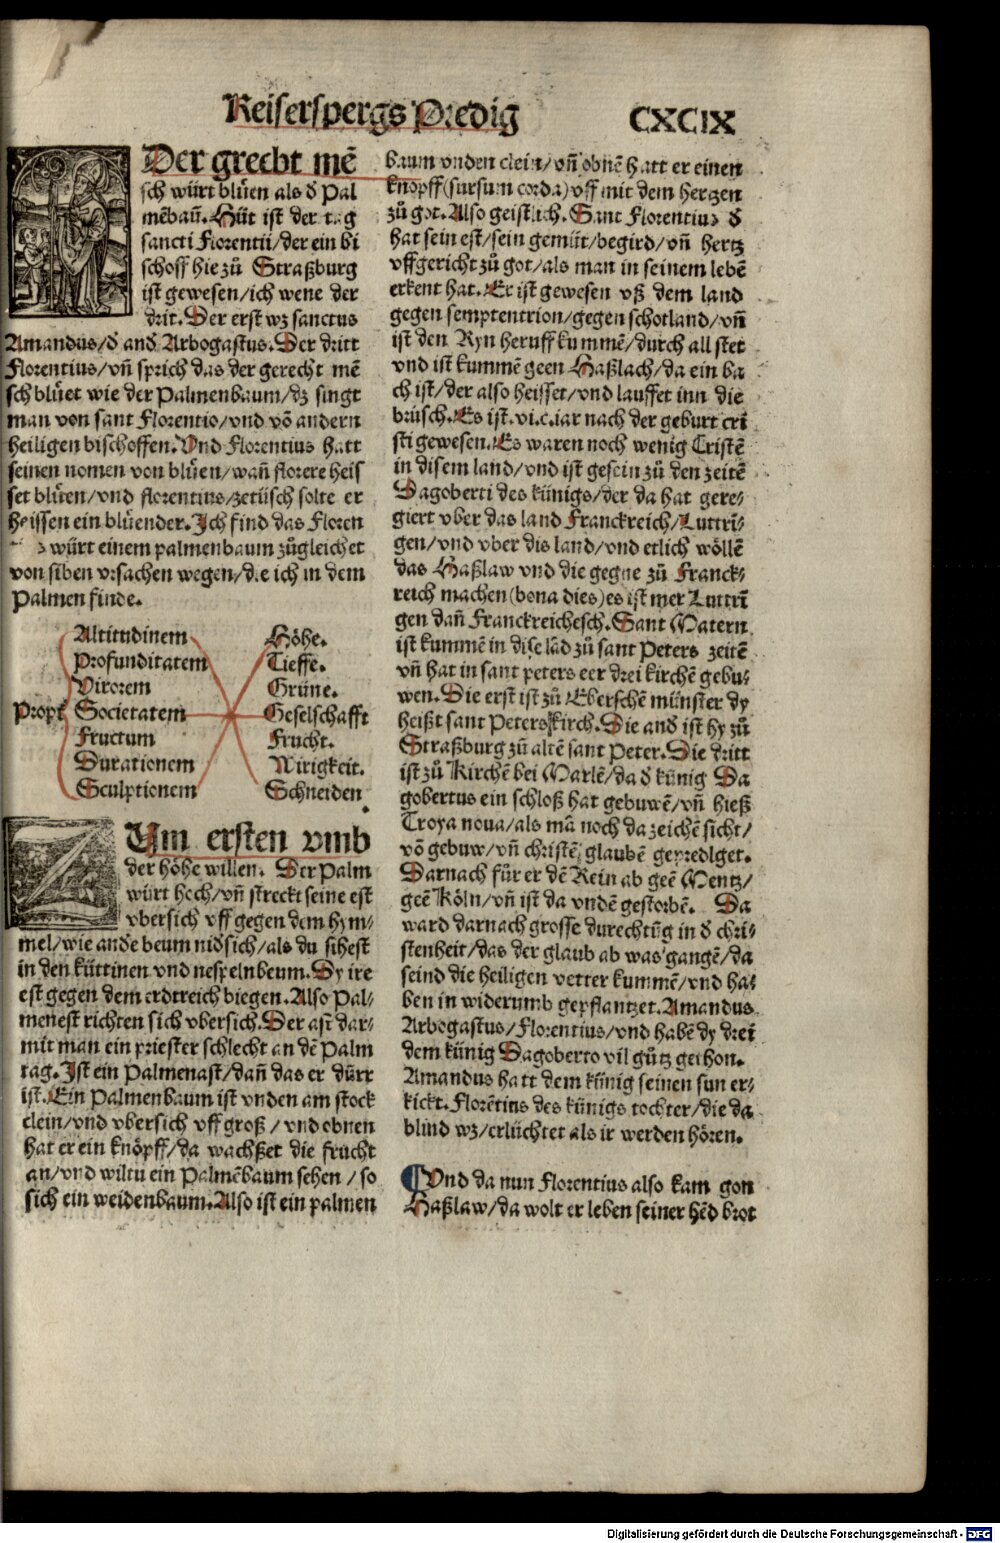 Keiserspergs Predig CXCIX
Der grecht mē
sch würt blüen als d̄ Pal
mēbaū. Hüt ist der tag
sancti Florentii/der ein bi
schoff hie zů Straßburg
ist gewesen/ich wene der
drit. Der erst wz sanctus
Amandus/d̄ and̄ Arbogastus. Der dritt
Florentius/vn̄ sprich das der gerecht mē
sch blüet wie der Palmenbaum/dz singt
man von sant Florentio/vnd vō andern
heiligen bischoffen. Vnd Florentius hatt
seinen nomen von blüen/wan̄ florere heis
set blüen/vnd florentius/zetüsch solte er
heissen ein blüender. Ich find das Floren
würt einem palmenbaum zůgleichet
von siben vrsachen wegen/die ich in dem
Palmen finde.
Propt̄
Altitudinem Höhe.
Profunditatem Tieffe.
Virorem Grüne.
Societatem Geselschafft
Fructum Frucht.
Durationem Nirigkeit.
Sculptionem Schneiden
ZUm ersten vmb
der höhe willen. Der Palm
würt hoch/vn̄ streckt seine est
vbersich vff gegen dem hym⸗
mel/wie ande beum nidsich/als du sihest
in den küttinen vnd nespelnbeum. Dy ire
est gegen dem erdtreich biegen. Also Pal⸗
menest richten sich vbersich. Der ast dar⸗
mit man ein priester schlecht an dē Palm
tag. Ist ein Palmenast/dan̄ das er dürr
ist. Ein Palmenbaum ist vnden am stock
clein/vnd vbersich vff groß/vnd obnen
hat er ein knöpff/da wachßet die frucht
an/vnd wiltu ein Palmēbaum sehen/so
sich ein weidenbaum. Also ist ein palmen
baum vnden clein/vn̄ obnē hatt er einen
knöpff (sursum corda) vff mit dem hertzen
zů got. Also geistlich. Sant Florentius d̄
hat sein est/sein gemüt/begird/vn̄ hertz
vffgericht zů got/als man in seinem lebē
erkent hat. Er ist gewesen vß dem land
gegen semptentrion/gegen schotland/vn̄
ist den Ryn heruff kummē/durch all stet
vnd ist kummē geen Haßlach/da ein ba
ch ist/der also heisset/vnd lauffet inn die
brüsch. Es ist .vi.c. iar nach der geburt cri
sti gewesen. Es waren noch wenig Cristē
in disem land/vnd ist gesein zů den zeitē
Dagoberti des künigs/der da hat gere⸗
giert vber das land Franckreich/Luttrī⸗
gen/vnd vber dis land/vnd etlich wöllē
das Haßlaw vnd die gegne zů Franck⸗
reich machen (bona dies) es ist mer Luttrī
gen dan̄ Franckreichesch. Sant Matern
ist kummē in dise lād zů sant Peters zeitē
vn̄ hat in sant peters eer drei kirchē gebu⸗
wen. Die erst ist zů Eberschē münster dy
heißt sant Peters kirch. Die and̄ ist hy zů
Straßburg zů altē sant Peter. Die dritt
ist zů Kirchē bei Marlē/da d̄ künig Da
gobertus ein schloß hat gebuwē/vn̄ hieß
Troya noua/als mā noch da zeichē sicht/
vō gebuw/vn̄ christē glaubē geprediget.
Darnach für er dē Rein ab geē Mentz/
geē Köln/vn̄ ist da vndē gestorbē. Da
ward darnach grosse durechtūg in d̄ chri⸗
stenheit/das der glaub ab was gangē/da
seind die heiligen vetter kummē/vnd ha⸗
ben in widerumb gepflantzet. Amandus
Arbogastus/Florentius/vnd habē dy drei
dem künig Dagoberto vil gütz gethon.
Amandus hatt dem künig seinen sun er⸗
kickt. Florētius des künigs tochter/die da
blind wz/erlüchtet als ir werden hören.
¶Vnd da nun Florentius also kam gon
Haßlaw/da wolt er leben seiner hēd brot
Digitalisierung gefördert durch die Deutsche Forschungsgemeinschaft - DFG